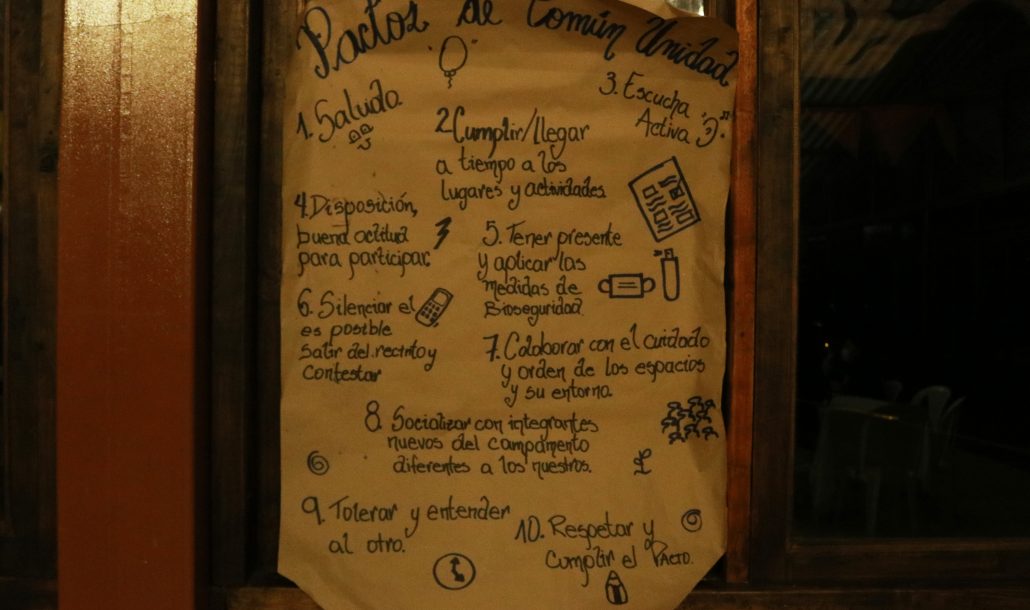 Pactos de Común Unidad
1. Saludo
2. Cumplir/Llegar
a tiempo a los
lugares y actividades
3. Escucha
Activa
4. Disposición,
buena actitud
para participar.
5. Tener presente
y aplicar las
medidas de
Bioseguridad
6. Silenciar el
es posible
Salir del recinto y
contestar
7. Colaborar con el cuidado
y orden de los espacios
y su entorno
8. Socializar con integrantes
nuevos del campamento
diferentes a los nuestros.
9. Tolerar y entender
al otro.
10. Respetar y
Cumplir el PACTO.